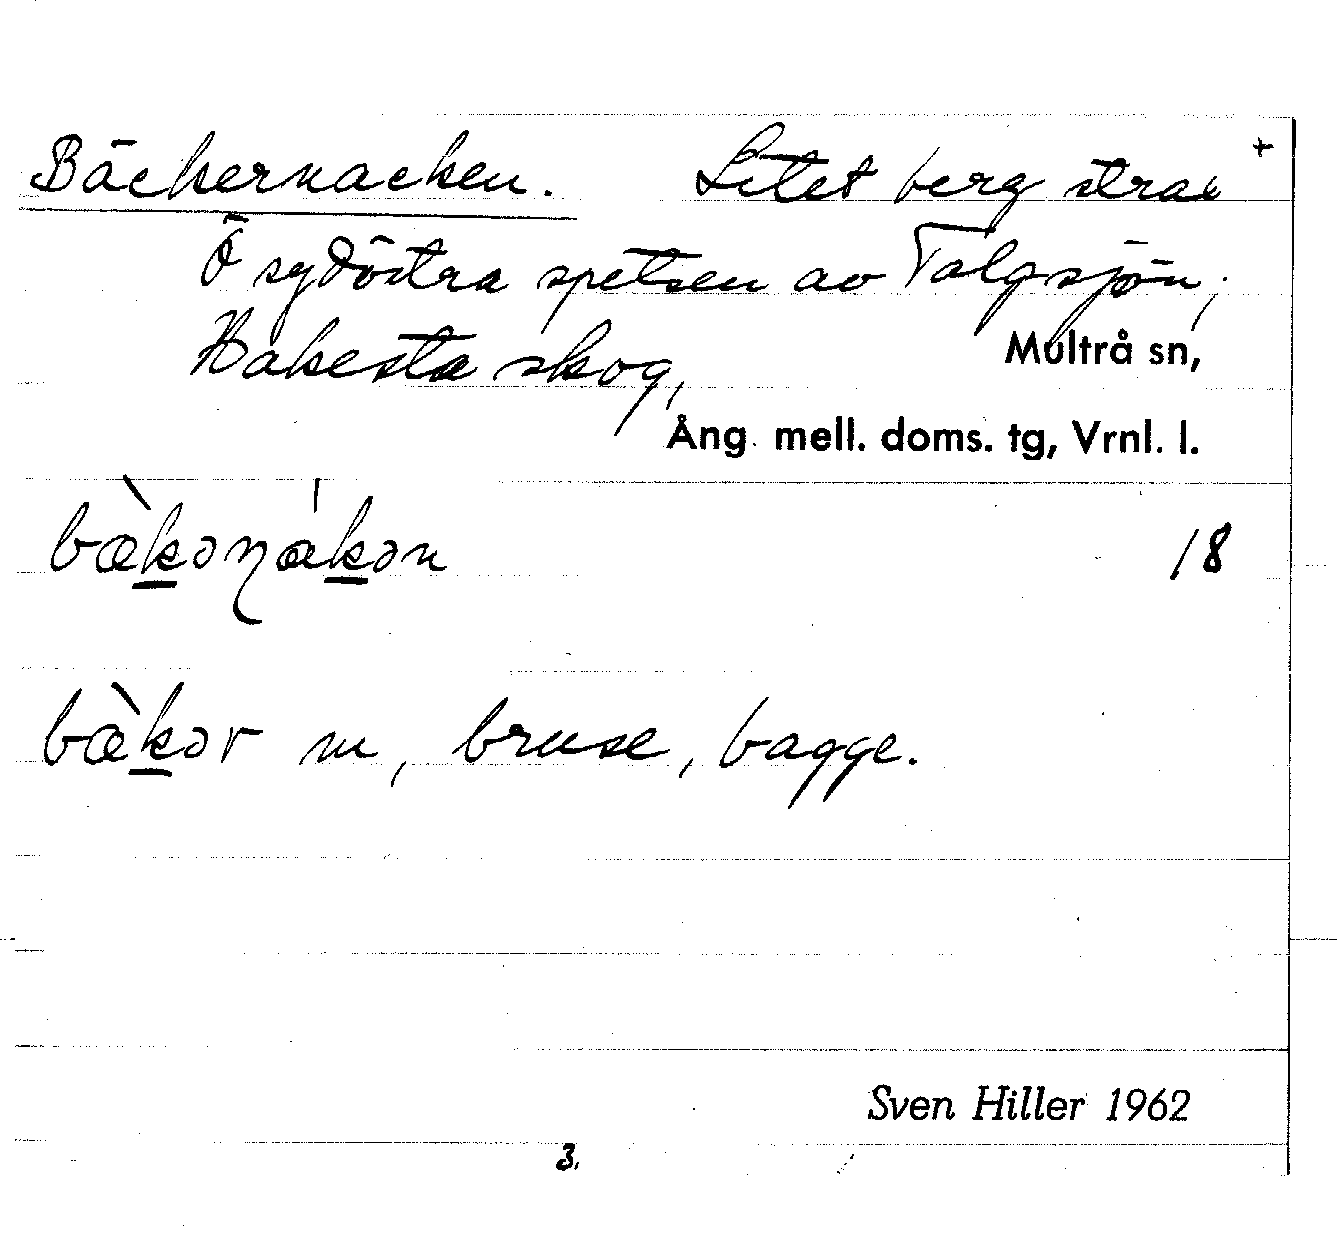 Bäckernacken. Litet berg strax +
Ö sydöstra spetsen av Talgsjön,
Hakesta skog, Multrå sn,
Ång. mell. doms. tg, Vrnl. l.
18
m, bruse, bagge.
Sven Hiller 1962
3.